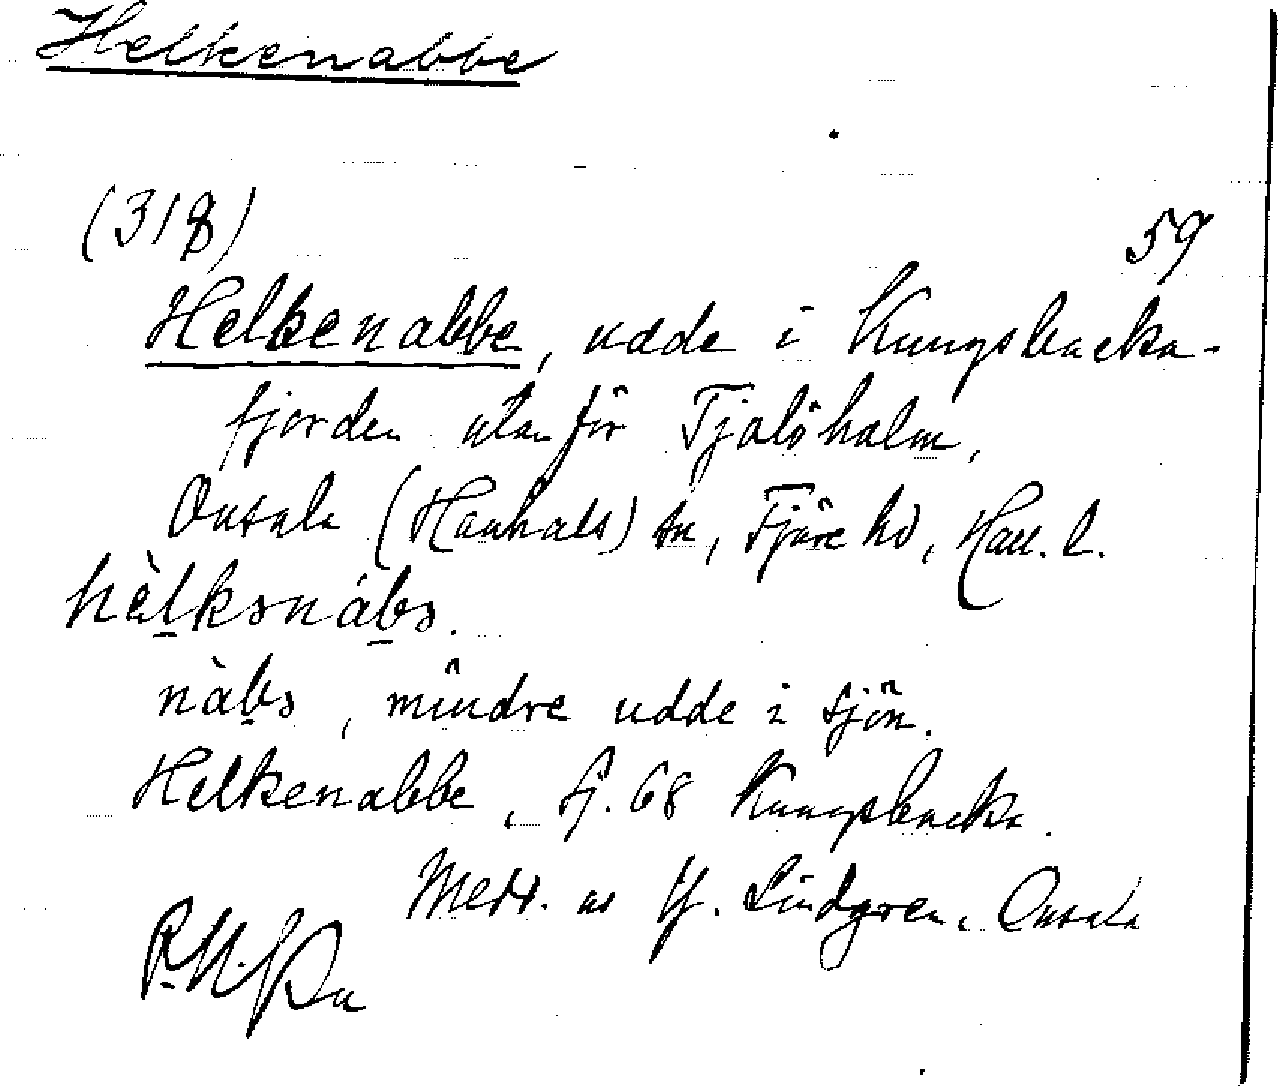 Helkenabbe
(318) 59
Helkenabbe, udde i Kungsbacka-
fjorden utanför Tjolöholm,
Onsala (Hanhals) sn, Fjäre hd, Hall. l.
hèlkənábə.
nàbə, mindre udde i sjön.
Helkenabbe, fj. 68 Kungsbacka.
Medd. av Hj. Lindgren, Onsala